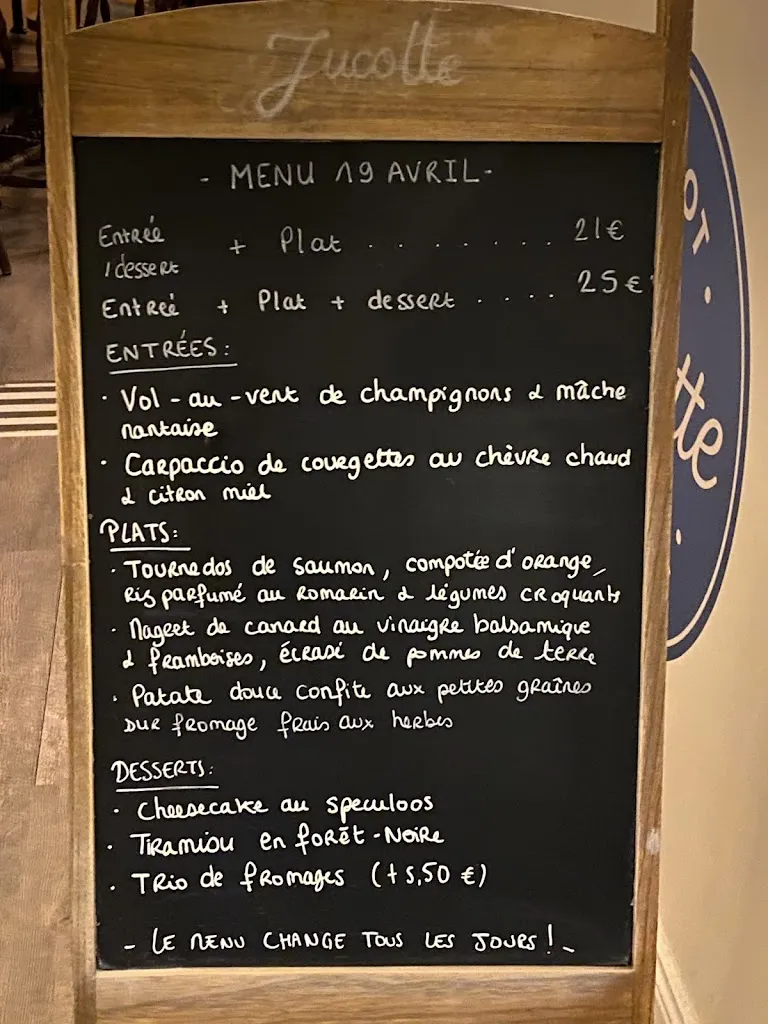 Jucotte
- MENU 19 AVRIL -
Entrée / dessert + Plat . . . . . . . . 21€
Entreé + Plat + dessert . . . . 25€
ENTRÉES :
· Vol-au-vent de champignons & mâche
nantaise
· Carpaccio de courgettes au chèvre chaud
& citron miel
PLATS :
· Tournedos de saumon, compotée d'orange,
Riz parfumé au Romarin & légumes croquants
· Magret de canard au vinaigre balsamique
& framboises, écrasé de pommes de terre
· Patate douce confite aux petites graînes
sur fromage frais aux herbes
DESSERTS :
· Cheesecake au speculoos
· Tiramisu en forêt-Noire
· Trio de fromages (+5,50 €)
- LE MENU CHANGE TOUS LES JOURS ! -
OT ·
tte